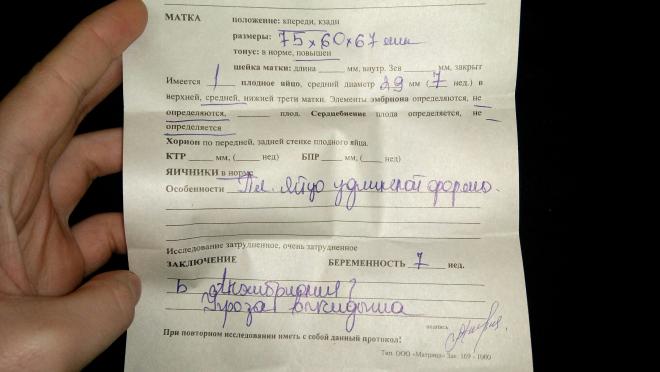 МАТКА положение: кпереди, кзади
размеры: 75х60х67 мм
тонус: в норме, повышен
шейка матки: длина мм, внутр. Зев мм, закрыт
Имеется 1 плодное яйцо, средний диаметр 29 мм (7 нед.) в
верхней, средней, нижней трети матки. Элементы эмбриона определяются, не
определяются, плод. Сердцебиение плода определяется, не
определяется
Хорион по передней, задней стенке плодного яйца.
КТР мм, ( нед) БПР мм, ( нед)
ЯИЧНИКИ в норме
Особенности Пл. яйцо удлинённой формы.
Исследование затрудненное, очень затрудненное
ЗАКЛЮЧЕНИЕ БЕРЕМЕННОСТЬ 7 нед.
Анэмбриония?
Угроза выкидыша
подпись
При повторном исследовании иметь с собой данный протокол!
Тип. ООО «Матрица» Зак. 169 - 1000